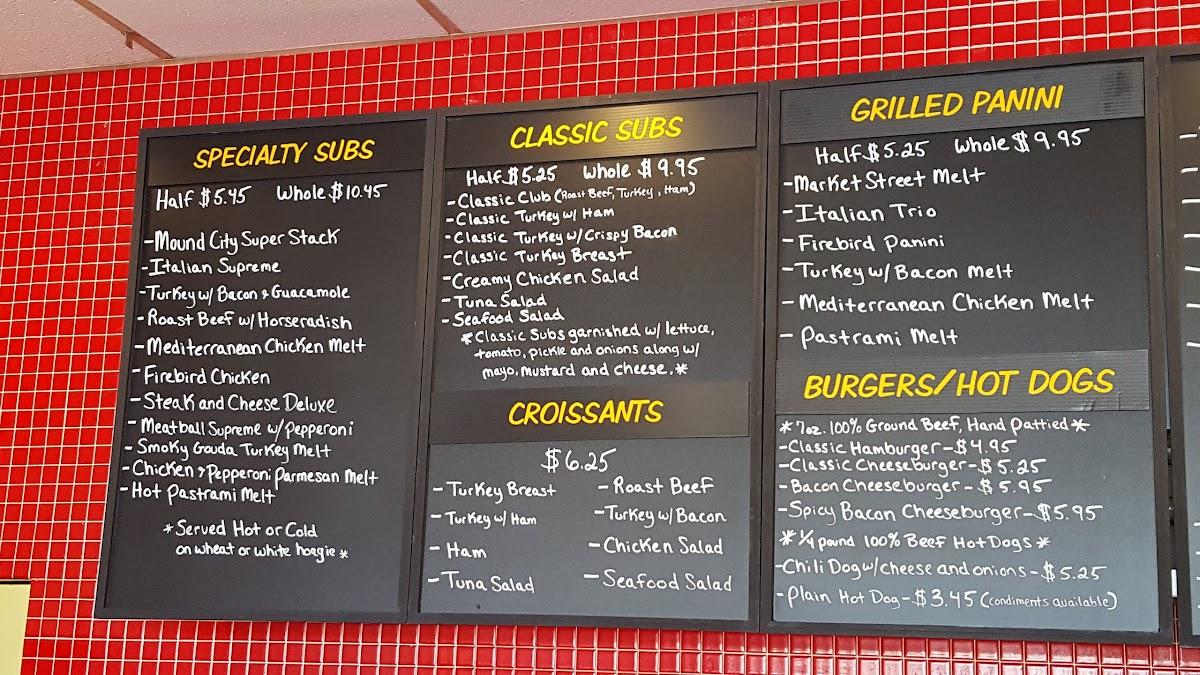 SPECIALTY SUBS
Half $5.45 Whole $10.45
-Mound City Super Stack
-Italian Supreme
-Turkey w/ Bacon & Guacamole
-Roast Beef w/ Horseradish
-Mediterranean Chicken Melt
-Firebird Chicken
-Steak and Cheese Deluxe
-Meatball Supreme w/Pepperoni
-Smoky Gouda Turkey Melt
-Chicken & Pepperoni Parmesan Melt
-Hot Pastrami Melt
*Served Hot or Cold
on wheat or white hoagie*
CLASSIC SUBS
Half $5.25 Whole $9.95
-Classic Club (Roast Beef, Turkey, Ham)
-Classic Turkey w/ Ham
-Classic Turkey w/Crispy Bacon
-Classic Turkey Breast
-Creamy Chicken Salad
-Tuna Salad
-Seafood Salad
*Classic Subs garnished w/ lettuce,
tomato, pickle and onions along w/
mayo, mustard and cheese.*
CROISSANTS
$6.25
-Turkey Breast
-Turkey w/ Ham
-Ham
-Tuna Salad
-Roast Beef
-Turkey w/Bacon
-Chicken Salad
-Seafood Salad
GRILLED PANINI
Half $5.25 Whole $9.95
-Market Street Melt
-Italian Trio
-Firebird Panini
-Turkey w/ Bacon Melt
-Mediterranean Chicken Melt
-Pastrami Melt
BURGERS/HOT DOGS
*7oz. 100% Ground Beef, Hand Pattied*
-Classic Hamburger-$4.95
-Classic Cheeseburger-$5.25
-Bacon Cheeseburger-$5.95
-Spicy Bacon Cheeseburger-$5.95
*1/4 pound 100% Beef Hot Dogs*
-Chili Dog w/cheese and onions-$5.25
-Plain Hot Dog-$3.45 (condiments available)